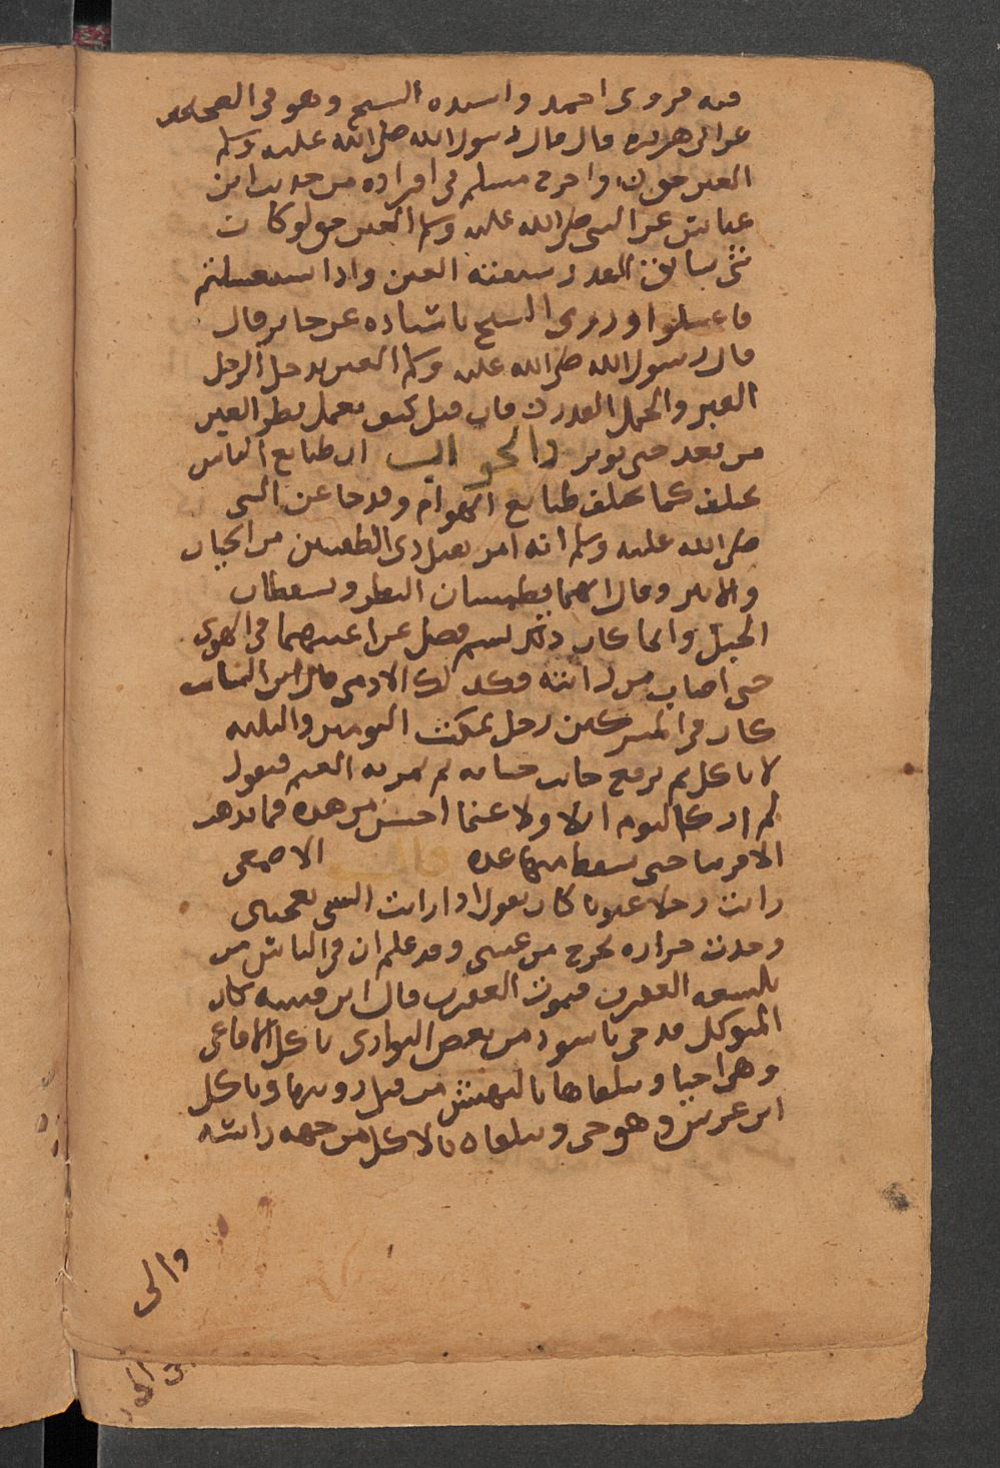 فيه فروى احمد واسنده الشيخ وهو في الصحاح
عن ابي هريرة قال قال رسول الله صلى الله عليه وسلم
العين حق واخرج مسلم في افراده من حديث ابن
عباس عن النبي صلى الله عليه وسلم العين حق ولو كان
شي سابق القدر سبقته العين واذا استغسلتم
فاغسلوا وروى الشيخ باسناده عن جابر قال
قال رسول الله صلى الله عليه وسلم العين تدخل الرجل
القبر والجمل القدر فان قيل كيف تعمل نظر العين
من بعد حتى يوثر والجواب ان طبايع الناس
تختلف كما تختلف طبايع الهوام وقد جا عن النبي
صلى الله عليه وسلم انه امر بقتل ذي الطفيتين من الحيات
والابتر وقال انهما يطمسان البصر ويسقطان
الحبل وانما كان ذلك لسم فصل عن اعينهما في الهوى
حتى اصاب من راتنه فكذلك الادمي قال ابن السايب
كان في المشركين رجل يمكث اليومين والثلثه
لا ياكل ثم يرفع جانب خبايه ثم تمر به الغنم فيقول
لم ار كاليوم ابلا ولا غنما احسن من هذه فما تذهب
الا قريبا حتى يسقط منها عده قال الاصمعي
رايت رجلا عيونا كان يقول اذا رايت الشي يعجبني
وجدت حراره تخرج من عيني وقد علم ان في الناس من
تلسعه العقرب فتموت العقرب قال ابن قتيبه كان
المتوكل قد جي باسود من بعض البوادي ياكل الافاعي
وهي احيا ويتلقاها بالنهش من قبل رووسها وياكل
ابن عرس وهو حي ويتلقاه بالاكل من جهه راسه
والى